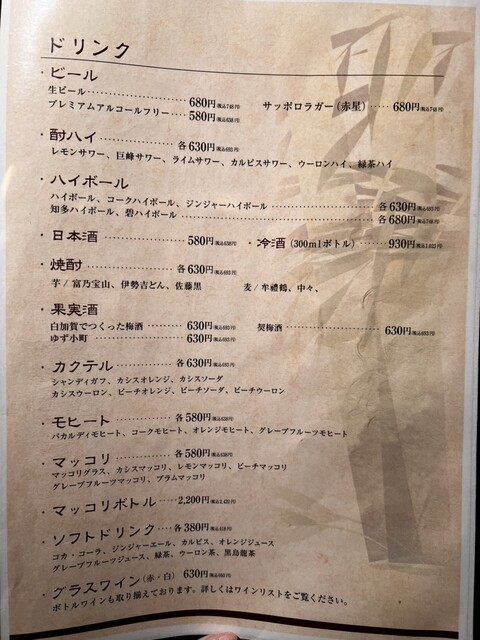 ドリンク
・ビール
生ビール 680円(税込748円) サッポロラガー(赤星) 680円(税込748円)
プレミアムアルコールフリー 580円(税込638円)
・酎ハイ 各630円(税込693円)
レモンサワー、巨峰サワー、ライムサワー、カルピスサワー、ウーロンハイ、緑茶ハイ
・ハイボール
ハイボール、コークハイボール、ジンジャーハイボール 各630円(税込693円)
知多ハイボール、碧ハイボール 各680円(税込748円)
・日本酒 580円(税込638円) ・冷酒(300mlボトル) 930円(税込1,023円)
・焼酎 各630円(税込693円)
芋/富乃宝山、伊勢吉どん、佐藤黒 麦/牟禮鶴、中々、
・果実酒
白加賀でつくった梅酒 630円(税込693円) 契梅酒 630円(税込693円)
ゆず小町 630円(税込693円)
・カクテル 各630円(税込693円)
シャンディガフ、カシスオレンジ、カシスソーダ
カシスウーロン、ピーチオレンジ、ピーチソーダ、ピーチウーロン
・モヒート 各580円(税込638円)
バカルディモヒート、コークモヒート、オレンジモヒート、グレープフルーツモヒート
・マッコリ 各580円(税込638円)
マッコリグラス、カシスマッコリ、レモンマッコリ、ピーチマッコリ
グレープフルーツマッコリ、プラムマッコリ
・マッコリボトル 2,200円(税込2,420円)
・ソフトドリンク 各380円(税込418円)
コカ・コーラ、ジンジャーエール、カルピス、オレンジジュース
グレープフルーツジュース、緑茶、ウーロン茶、黒烏龍茶
・グラスワイン(赤・白) 630円(税込693円)
ボトルワインも取り揃えております。詳しくはワインリストをご覧ください。